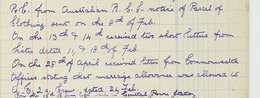 P.C. from Australian R.C.S. notice of Parcel of
Clothing sent on the 8th of Feb.
On the 13th & 14th received two short letters from
dated 11 & 18th of Feb.
On the 28th of April received letter from Commonwealth
Offices stating that marriage allowance was allowed
24 Feb.